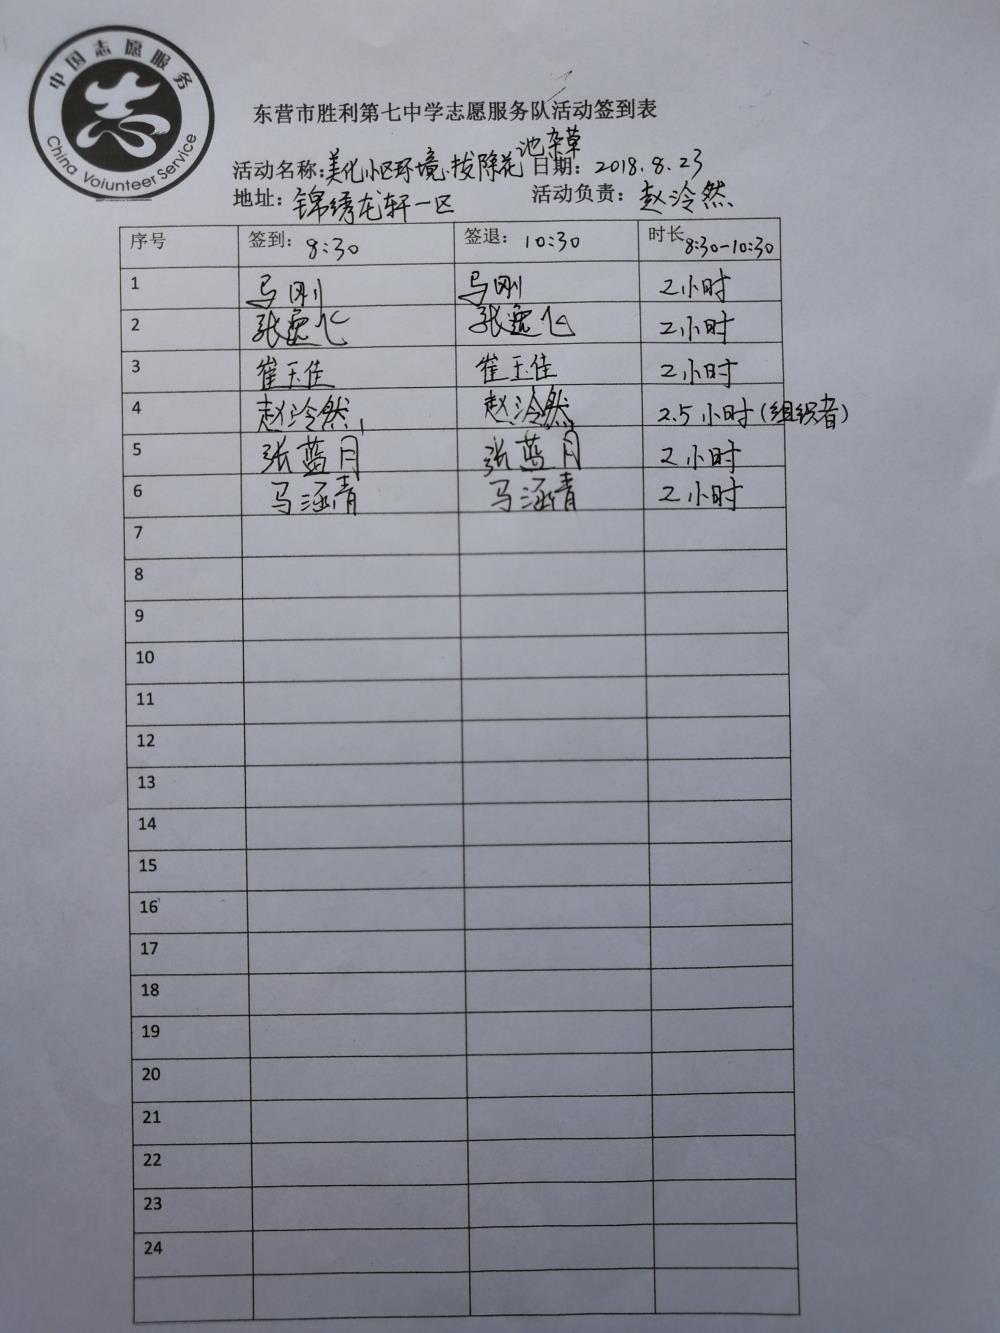 中国志愿服务
China Volunteer Service
东营市胜利第七中学志愿服务队活动签到表
活动名称:美化小区环境.拔除花池杂草 日期: 2018.8.23
地址: 锦绣龙轩一区 活动负责: 赵泠然
序号 签到: 8:30 签退: 10:30 时长 8:30-10:30
1 马刚 马刚 2小时
2 张逸飞 张逸飞 2小时
3 崔玉佳 崔玉佳 2小时
4 赵泠然 赵泠然 2.5小时(组织者)
5 张蓝月 张蓝月 2小时
6 马涵青 马涵青 2小时
7
8
9
10
11
12
13
14
15
16
17
18
19
20
21
22
23
24